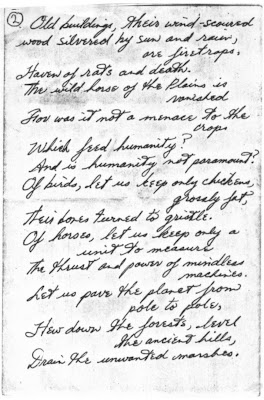 2
Old buildings, their wind-scoured
wood silvered by sun and rain,
are firetraps,
Haven of rats and death.
The wild horse of the Plains is
vanished
For was it not a menace to the
crops
Which feed humanity?
And is humanity not paramount?
Of birds, let us keep only chickens,
grossly fat,
Their bones turned to gristle.
Of horses, let us keep only a
unit to measure
The thrust and power of mindless
machines.
Let us pave the planet from
pole to pole,
Hew down the forests, level
the ancient hills,
Drain the unwanted marshes.